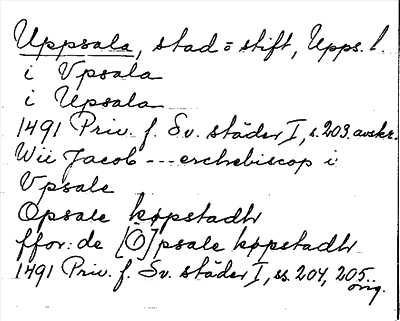 Uppsala, stad = stift, Upps. l.
i Vpsala
i Upsala
1491 Priv. f. Sv. städer I, s. 203. avskr.
Wii Jacob --- erchebiscop i
Vpsale
Opsale køpstadhr
ffor: de [Ö]psale køpstadhr
1491 Priv. f. Sv. städer I, ss. 204, 205.
orig.